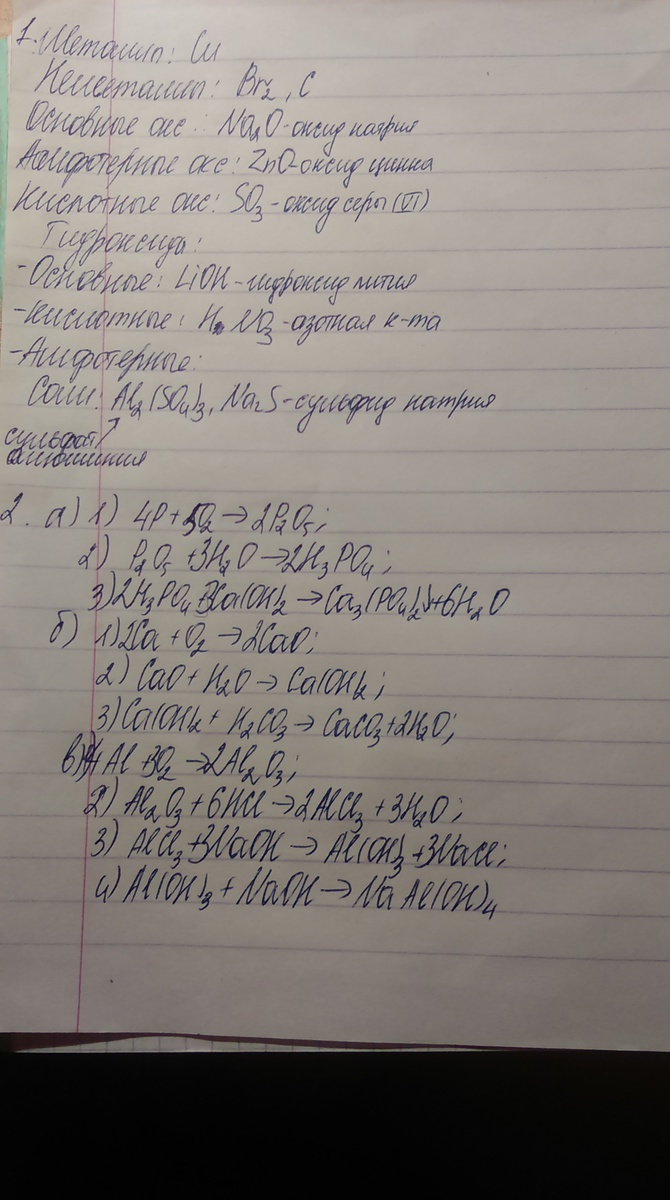 1. Металлы: Cu
Неметаллы: Br₂, C
Основные окс.: Na₂O - оксид натрия
Амфотерные окс: ZnO - оксид цинка
Кислотные окс: SO₃ - оксид серы (VI)
Гидроксиды:
- Основные: LiOH - гидроксид лития
- Кислотные: HNO₃ - азотная к-та
- Амфотерные:
Соли: Al₂(SO₄)₃, Na₂S - сульфид натрия
сульфат
алюминия
2. а) 1) 4P + 5O₂ → 2P₂O₅;
2) P₂O₅ + 3H₂O → 2H₃PO₄;
3) 2H₃PO₄ + 3Ca(OH)₂ → Ca₃(PO₄)₂↓ + 6H₂O
б) 1) 2Ca + O₂ → 2CaO;
2) CaO + H₂O → Ca(OH)₂;
3) Ca(OH)₂ + H₂CO₃ → CaCO₃ + 2H₂O;
в) 1) 4Al + 3O₂ → 2Al₂O₃;
2) Al₂O₃ + 6HCl → 2AlCl₃ + 3H₂O;
3) AlCl₃ + 3NaOH → Al(OH)₃ + 3NaCl;
4) Al(OH)₃ + NaOH → NaAl(OH)₄